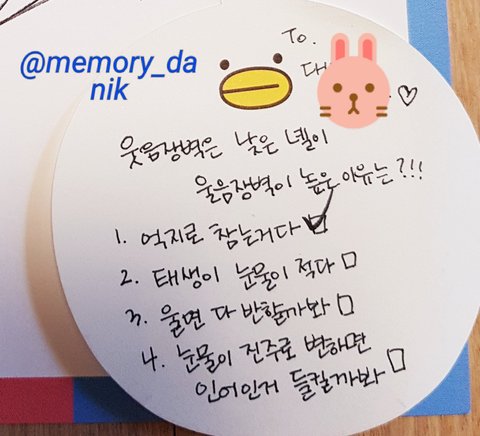 @memory_da
nik
To.
웃음장벽은 낮은 녤이
울음장벽이 높은 이유는?!!
1. 억지로 참는거다
2. 태생이 눈물이 적다
3. 울면 다 반할까봐
4. 눈물이 진주로 변하면
인어인거 들킬까봐